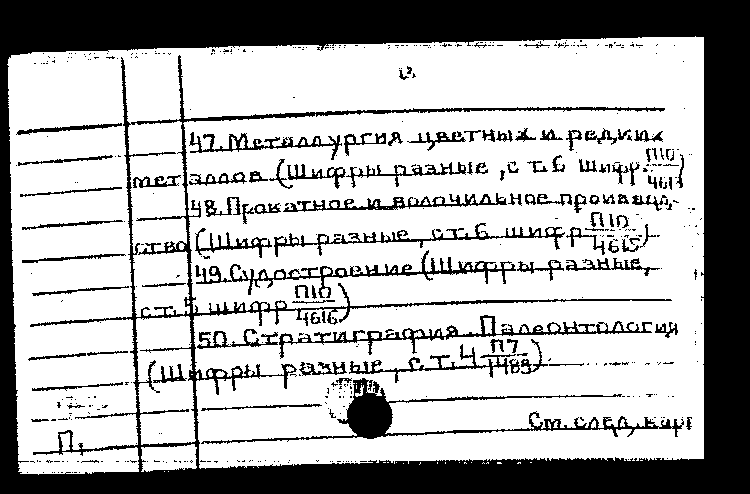 13
47. Металлургия цветных и редких
металлов (Шифры разные, с т. 6 шифр П10/4613)
48. Прокатное и волочильное производ-
ство (Шифры разные, с т. 6 шифр П10/4615)
49. Судостроение (Шифры разные,
с т. 5 шифр П10/4616)
50. Стратиграфия. Палеонтология
(Шифры разные, с т. 4 П7/1489)
См. след. карт
П.